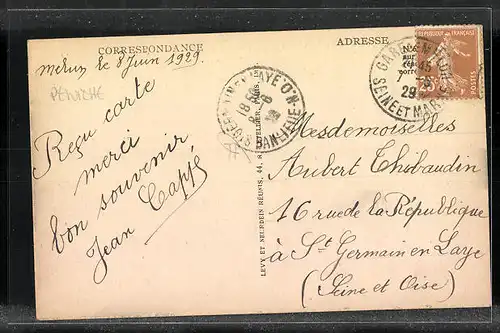 CORRESPONDANCE
ADRESSE
le 8 Juin 1929.
PENICHE
Reçu carte
merci
bon souvenir
Jean
LEVY ET NEURDEIN RÉUNIS, 44, R. LETELLIER, PARIS
18
BANLIEUE
REPUBLIQUE FRANÇAISE
POSTES
GARE
SEINE ET MARNE
29
Mesdemoiselles
Aubert Thibaudin
16 rue de la République
à St Germain en Laye
(Seine et Oise)